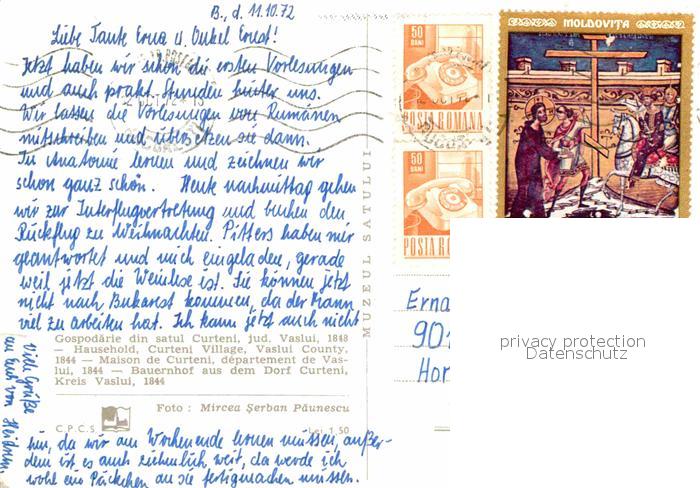 B., d. 11.10.72
Liebe Tante Erna u. Onkel Ernst!
Jetzt haben wir schon die ersten Vorlesungen
und auch prakt. Stunden hinter uns.
Wir lassen die Vorlesungen von Rumänen
mitschreiben und übersetzen sie dann.
In Anatomie lernen und zeichnen wir
schon ganz schön. Heute nachmittag gehen
wir zur Interflugvertretung und buchen den
Rückflug zu Weihnachten. Pitters haben mir
geantwortet und mich eingeladen, gerade
weil jetzt die Weinlese ist. Sie können jetzt
nicht nach Bukarest kommen, da der Mann
viel zu arbeiten hat. Ich kann jetzt auch nicht
hin, da wir am Wochenende lernen müssen, außer-
dem ist es auch ziemlich weit, da werde ich
wohl ein Päckchen an sie fertigmachen müssen.
Viele Grüße
an Euch von
Gospodărie din satul Curteni, jud. Vaslui, 1848
— Hausehold, Curteni Village, Vaslui County,
1844 — Maison de Curteni, département de Vas-
lui, 1844 — Bauernhof aus dem Dorf Curteni,
Kreis Vaslui, 1844
Foto : Mircea Şerban Păunescu
C.P.C.S.
Lei 1,50
MUZEUL SATULUI
50
BANI
POSTA ROMANA
50
BANI
POSTA RO
MOLDOVIŢA
Erna
90
Hor
privacy protection
Datenschutz